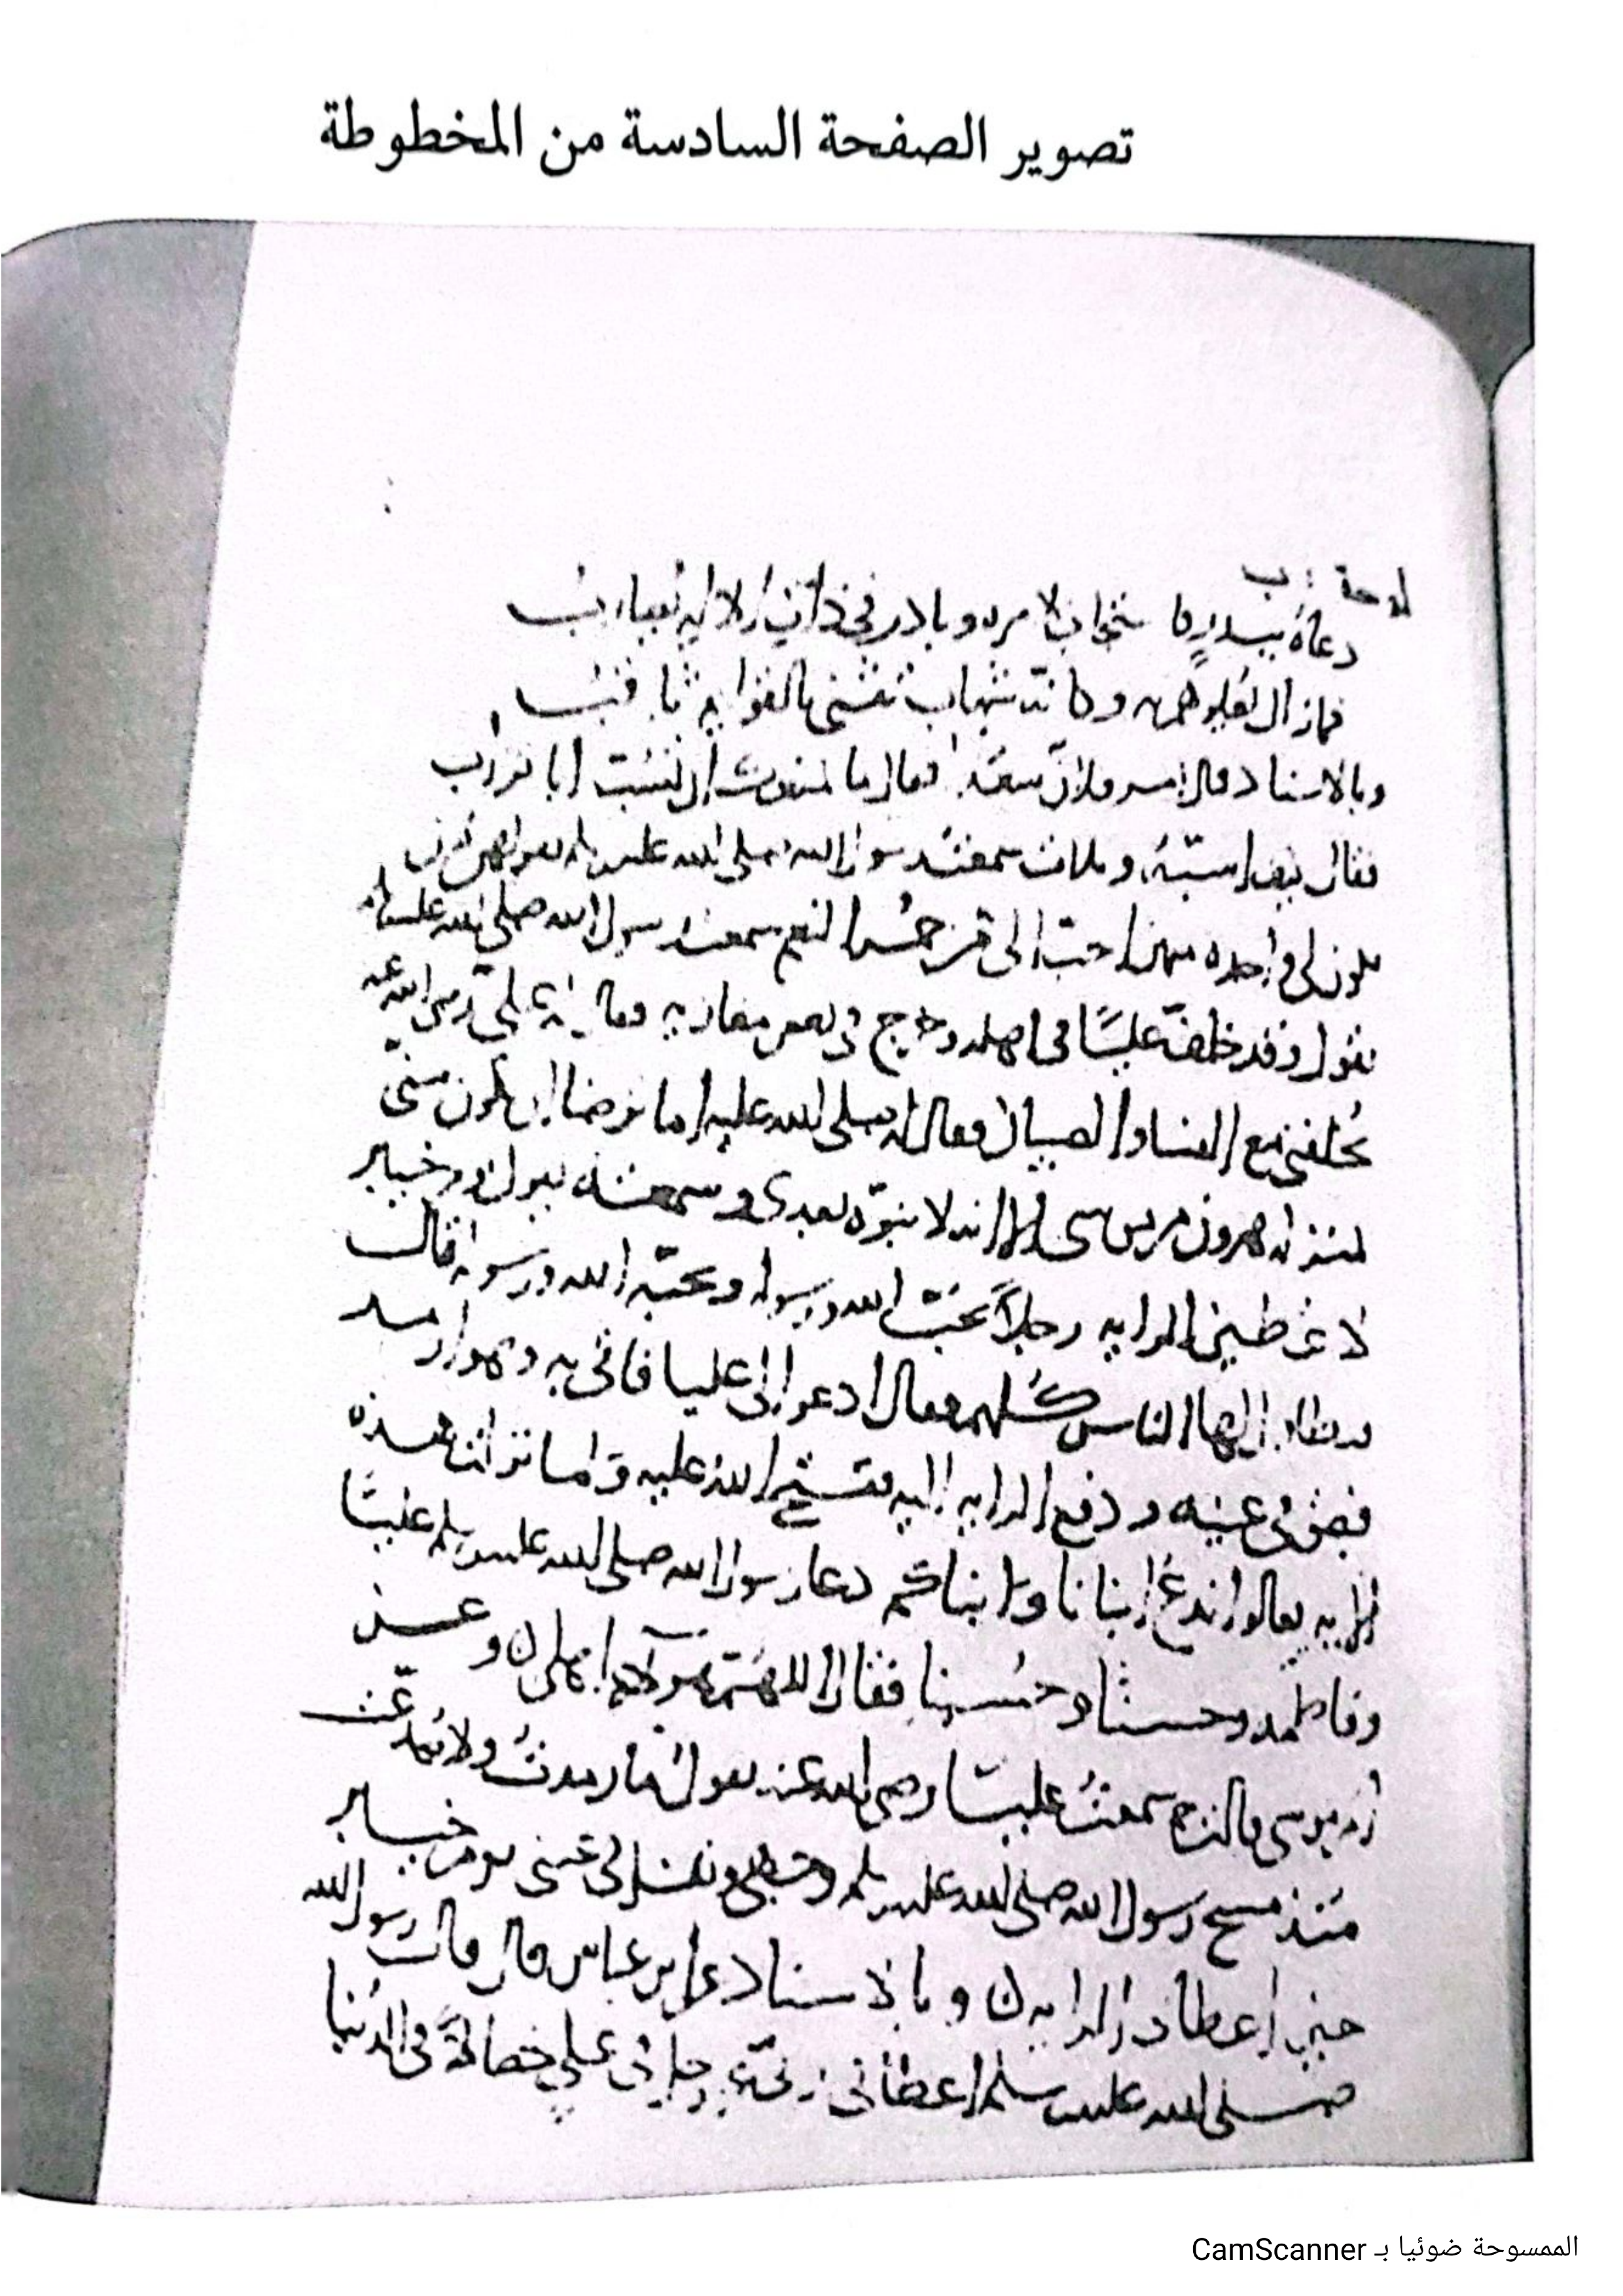 تصوير الصفحة السادسة من المخطوطة
لوحة ب
دعاه ببدر فاستجاب لامره وبادر في ذات الاله يضارب
فما زال يعلوهم به وكانه شهاب بالقوابه ثاقب
وبالاسناد قال امر فلان سعدا فقال ما لمنعك ان تسب ابا تراب
فقال كيف اسبه وثلاث سمعت رسول الله صلى الله عليه يقولهن لان
تكون لي واحده منهن احب الى من حمر النعم سمعت رسول الله صلى الله عليه
يقول وقد خلف عليا في اهله وخرج في بعض مغازيه فقال له علي رضي الله عنه
تخلفني مع النسا والصبيان فقال له صلى الله عليه اما ترضا ان تكون مني
بمنزله هرون من موسى الا انه لا نبوه بعدى وسمعته يقول يوم خيبر
لاعطين الرايه رجلا يحب الله ورسوله ويحبه الله ورسوله قال
فتطاول الها الناس كلهم فقال ادعوا الى عليا فاتى به وهو ارمد
فبصق في عينيه ودفع الرايه اليه ففتح الله عليه ولما نزلت هذه
الايه تعالوا ندع ابنانا وابناكم دعا رسول الله صلى الله عليه وسلم عليا
وفاطمه وحسنا وحسينا فقال اللهم هولاء اهلي وعن
ام موسى قالت سمعت عليا رضي الله عنه يقول ما رمدت ولا صدعت
منذ مسح رسول الله صلى الله عليه وسلم وجهي وتفل في عيني يوم خيبر
حين اعطاني الرايه وبالاسناد عن ابن عباس قال قال رسول الله
صلى الله عليه وسلم اعطاني ربي في علي خصالا في الدنيا
الممسوحة ضوئيا بـ CamScanner